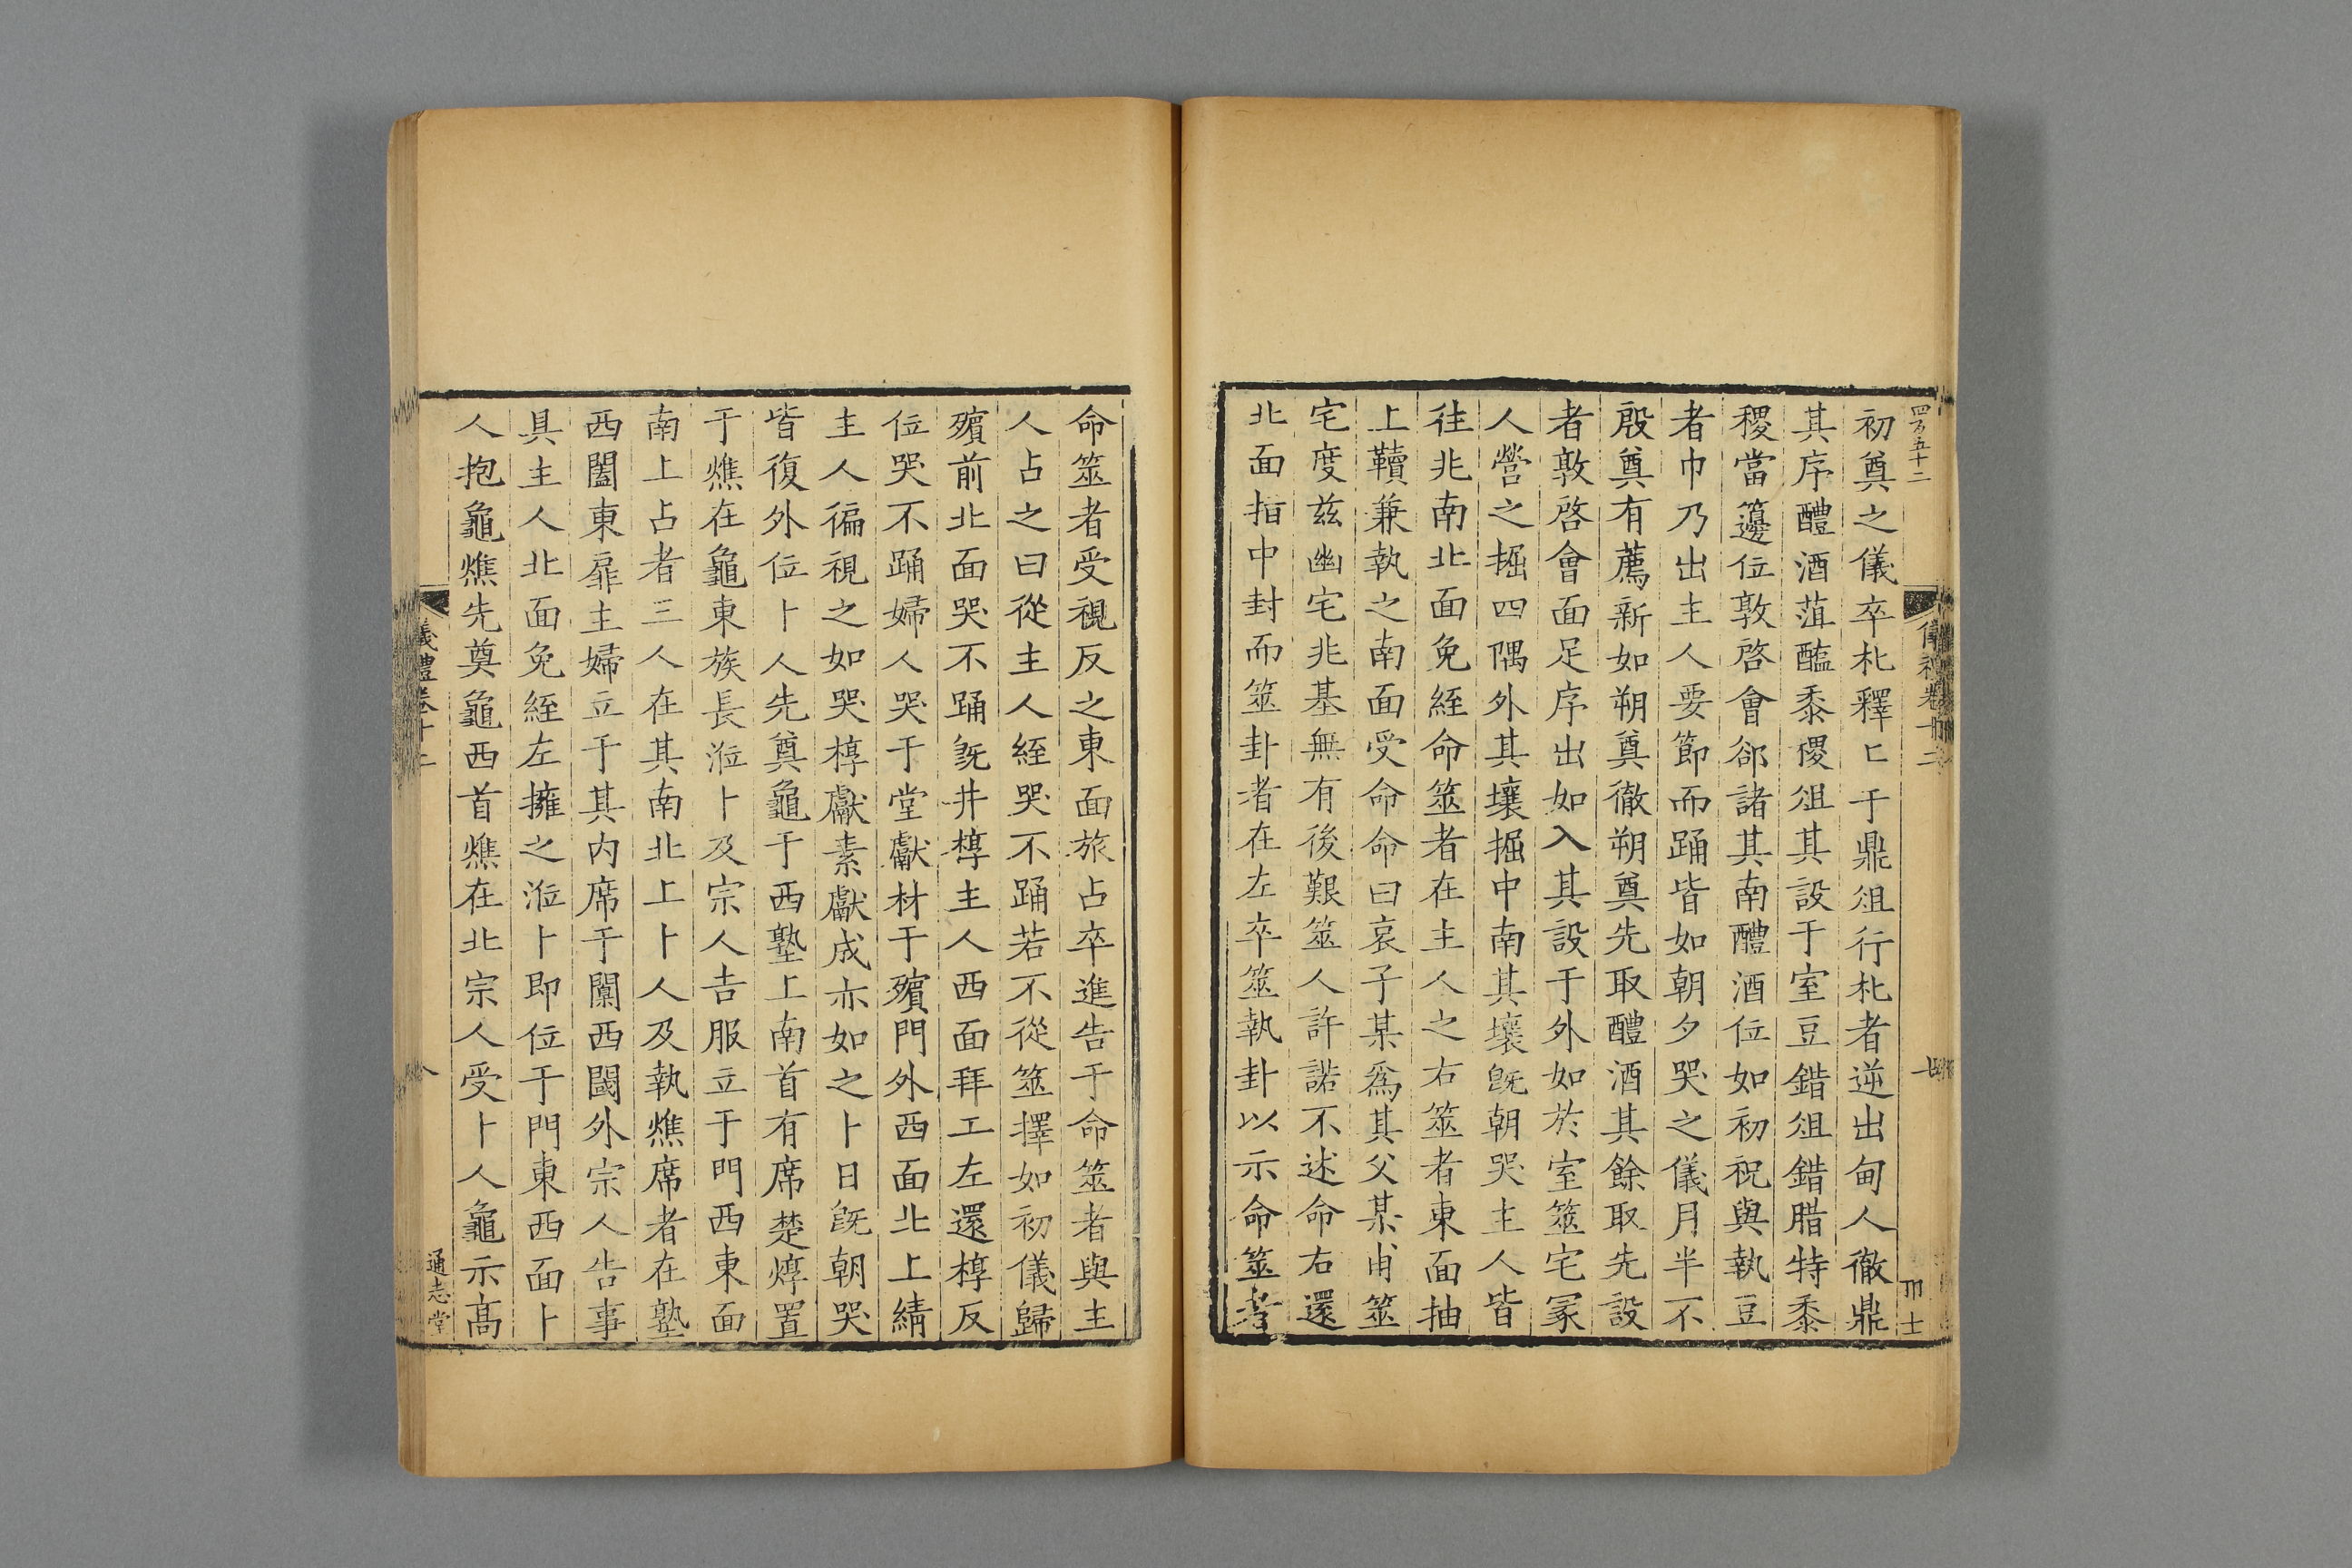 四百五十二
初奠之儀卒朼釋匕于鼎俎行朼者逆出甸人徹鼎
其序醴酒菹醢黍稷俎其設于室豆錯俎錯腊特黍
稷當籩位敦啓會郤諸其南醴酒位如初祝與執豆
者巾乃出主人要節而踊皆如朝夕哭之儀月半不
殷奠有薦新如朔奠徹朔奠先取醴酒其餘取先設
者敦啓會面足序出如入其設于外如於室筮宅冢
人營之掘四隅外其壤掘中南其壤旣朝哭主人皆
往兆南北面免絰命筮者在主人之右筮者東面抽
上韇兼執之南面受命命曰哀子某爲其父某甫筮
宅度兹幽宅兆基無有後艱筮人許諾不述命右還
北面指中封而筮卦者在左卒筮執卦以示命筮者
命筮者受視反之東面旅占卒進告于命筮者與主
人占之曰從主人絰哭不踊若不從筮擇如初儀歸
殯前北面哭不踊旣井椁主人西面拜工左還椁反
位哭不踊婦人哭于堂獻材于殯門外西面北上綪
主人徧視之如哭椁獻素獻成亦如之卜日旣朝哭
皆復外位卜人先奠龜于西塾上南首有席楚焞置
于燋在龜東族長涖卜及宗人吉服立于門西東面
南上占者三人在其南北上卜人及執燋席者在塾
西闔東扉主婦立于其內席于闑西閾外宗人告事
具主人北面免絰左擁之涖卜卽位于門東西面卜
人抱龜燋先奠龜西首燋在北宗人受卜人龜示高
儀禮卷十二
通志堂